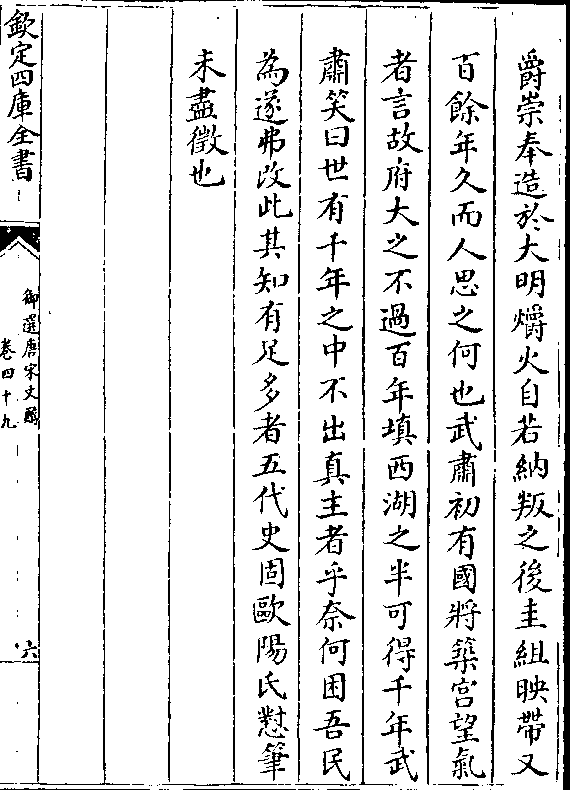 爵崇奉造於大明爝火自若納叛之後圭組映帶又
百餘年久而人思之何也武肅初有國將築宮望氣
者言故府大之不過百年填西湖之半可得千年武
肅笑曰世有千年之中不出真主者乎奈何困吾民
為遂弗改此其知有足多者五代史固歐陽氏懟筆
未盡徵也
欽定四庫全書
御選唐宋文醇
卷四十九
六